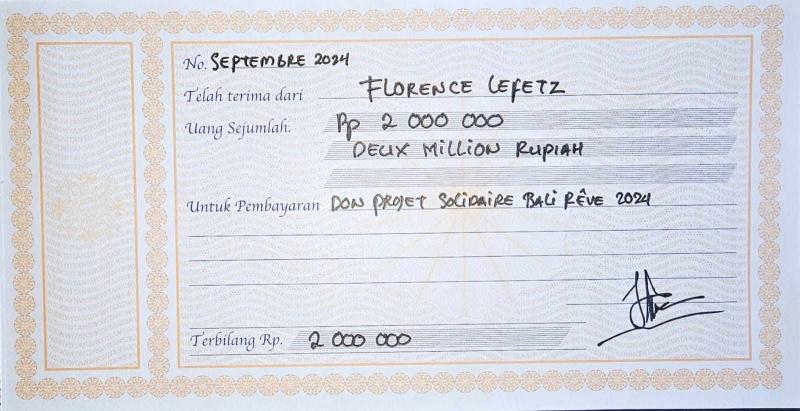 No. SEPTEMBRE 2024
Telah terima dari FLORENCE LEFETZ
Uang Sejumlah. Rp 2 000 000
DEUX MILLION RUPIAH
Untuk Pembayaran DON PROJET SOLIDAIRE BALI RÊVE 2024
Terbilang Rp. 2 000 000